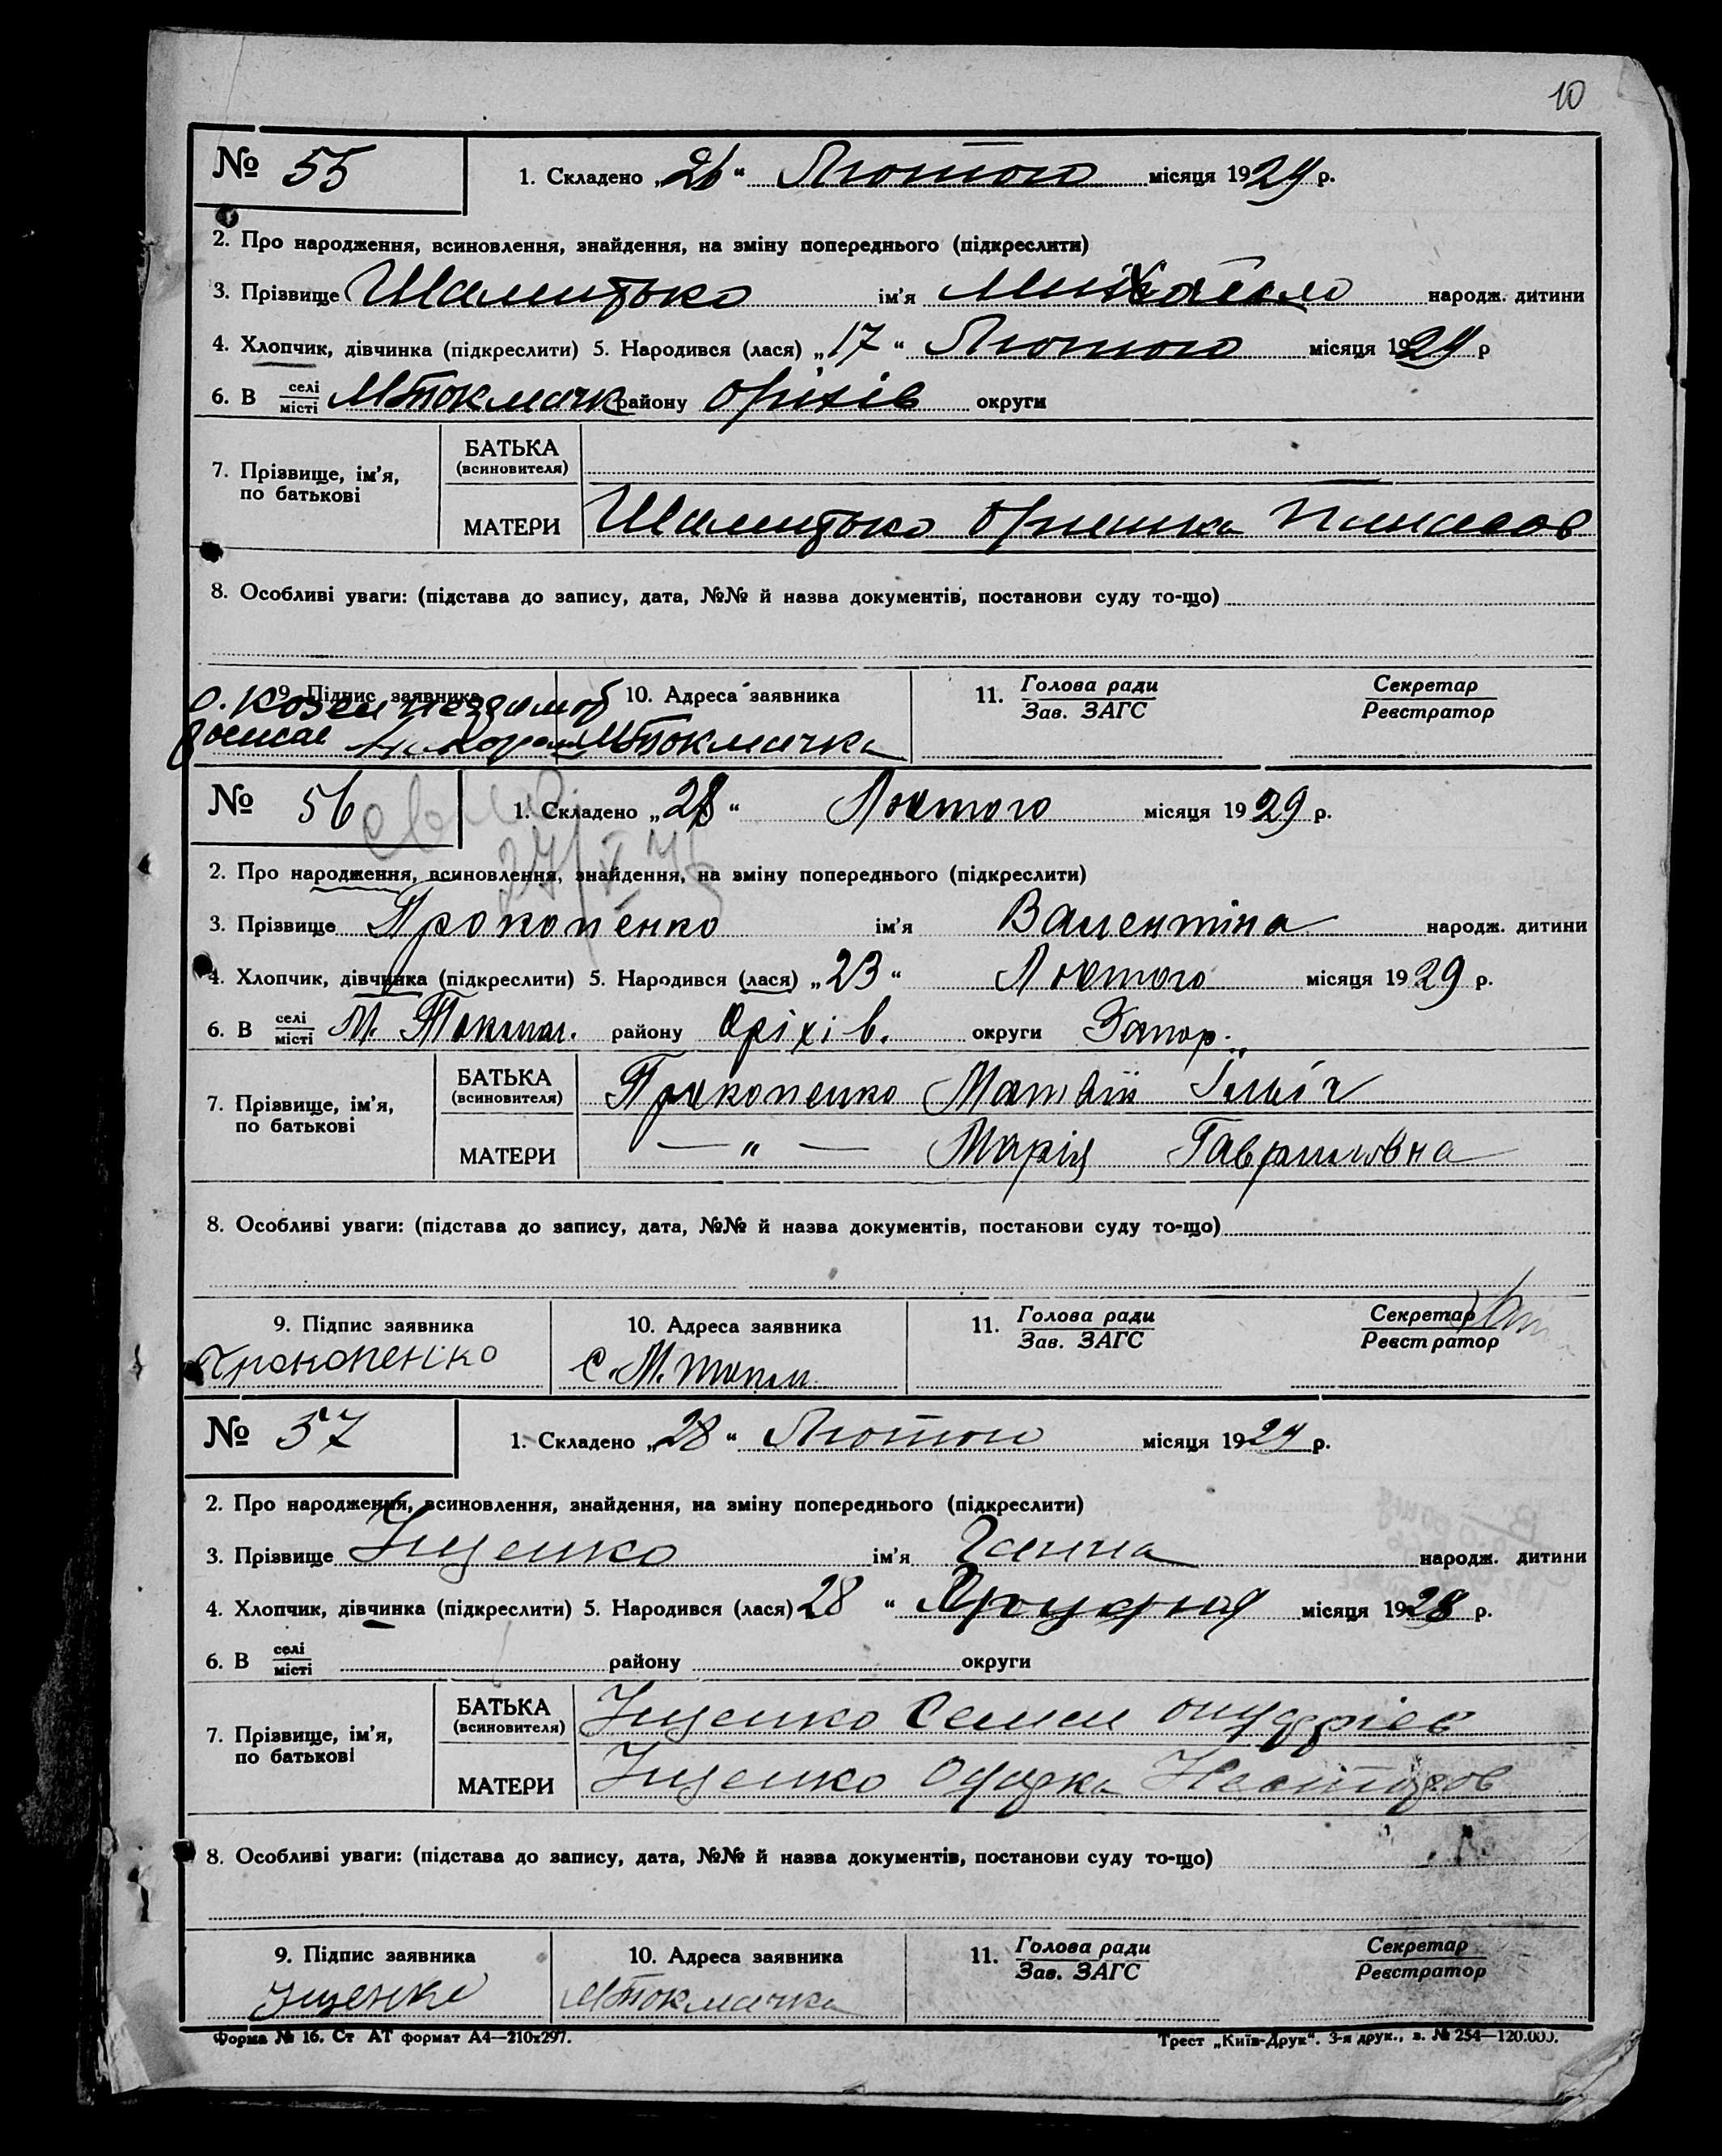 10
№ 55
1. Складено „26“ Лютого місяця 1929 р.
2. Про народження, всиновлення, знайдення, на зміну попереднього (підкреслити)
3. Прізвище Шамитько ім'я Михайло народж. дитини
4. Хлопчик, дівчинка (підкреслити) 5. Народився (лася) „17“ Лютого місяця 1929 р
6. В селі/місті МТокмачк району Оріхів округи
7. Прізвище, ім'я, по батькові
БАТЬКА (всиновителя)
МАТЕРИ Шамитько Оришка Панасов
8. Особливі уваги: (підстава до запису, дата, №№ й назва документів, постанови суду то-що)
9. Підпис заявника 10. Адреса заявника 11. Голова ради/Зав. ЗАГС Секретар/Реєстратор
МТокмачка
№ 56
1. Складено „28“ Лютого місяця 1929 р.
2. Про народження, всиновлення, знайдення, на зміну попереднього (підкреслити)
3. Прізвище Прокопенко ім'я Валентіна народж. дитини
4. Хлопчик, дівчинка (підкреслити) 5. Народився (лася) „23“ Лютого місяця 1929 р.
6. В селі/місті М. Токмач. району Оріхів. округи Запор.
7. Прізвище, ім'я, по батькові
БАТЬКА (всиновителя) Прокопенко Матвій Ілліч
МАТЕРИ — „ — Марія Гавриловна
8. Особливі уваги: (підстава до запису, дата, №№ й назва документів, постанови суду то-що)
9. Підпис заявника 10. Адреса заявника 11. Голова ради/Зав. ЗАГС Секретар/Реєстратор
Прокопенко С. М. Токм.
№ 57
1. Складено „28“ Лютого місяця 1929 р.
2. Про народження, всиновлення, знайдення, на зміну попереднього (підкреслити)
3. Прізвище Іщенко ім'я Ганна народж. дитини
4. Хлопчик, дівчинка (підкреслити) 5. Народився (лася) 28 “ місяця 1928 р.
6. В селі/місті району округи
7. Прізвище, ім'я, по батькові
БАТЬКА (всиновителя) Іщенко Семен Андріев
МАТЕРИ Іщенко Одарка Несторов
8. Особливі уваги: (підстава до запису, дата, №№ й назва документів, постанови суду то-що)
9. Підпис заявника 10. Адреса заявника 11. Голова ради/Зав. ЗАГС Секретар/Реєстратор
Іщенко МТокмачка
Форма № 16. Ст АТ формат А4—210х297. Трест „Київ-Друк“. 3-я друк., з. № 254—120.000.